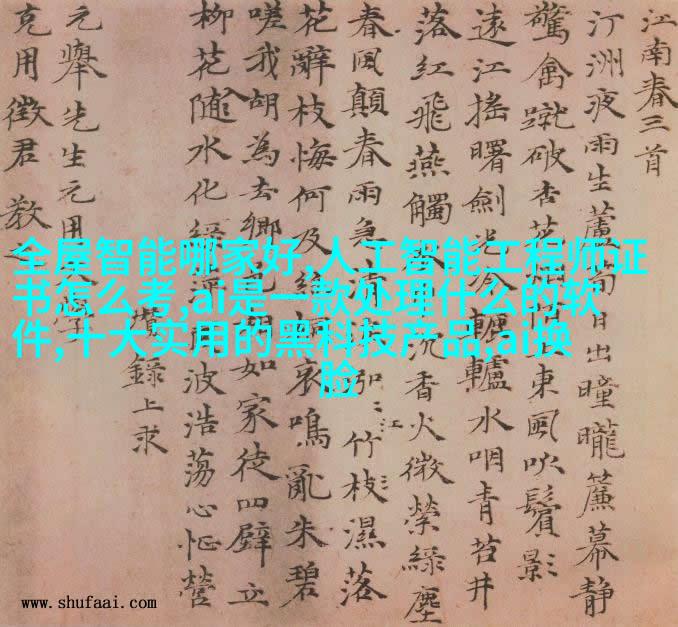 江南春三首
汀洲夜雨生蘆筍日出曈曨簾幕靜
驚禽蹴破杏花東風吹鬢影
遠江搖曙劍光冷轆轤水咽青苔井
落紅飛燕觸沉香火微縈綠塵
春風顛春雨急清泓江竹枝濕落
花辭枝悔何及絲桐哀鳴亂朱碧
嗟我胡為去鄉邑相如家徒四壁立
柳花隨水化綠萍風波浩蕩心怔營
錄上求
元舉先生元用學
克用徵君教之
全屋智能哪家好,人工智能工程师证
书怎么考,ai是一款处理什么的软
件,十大实用的黑科技产品,ai换
脸
www.shufaai.com